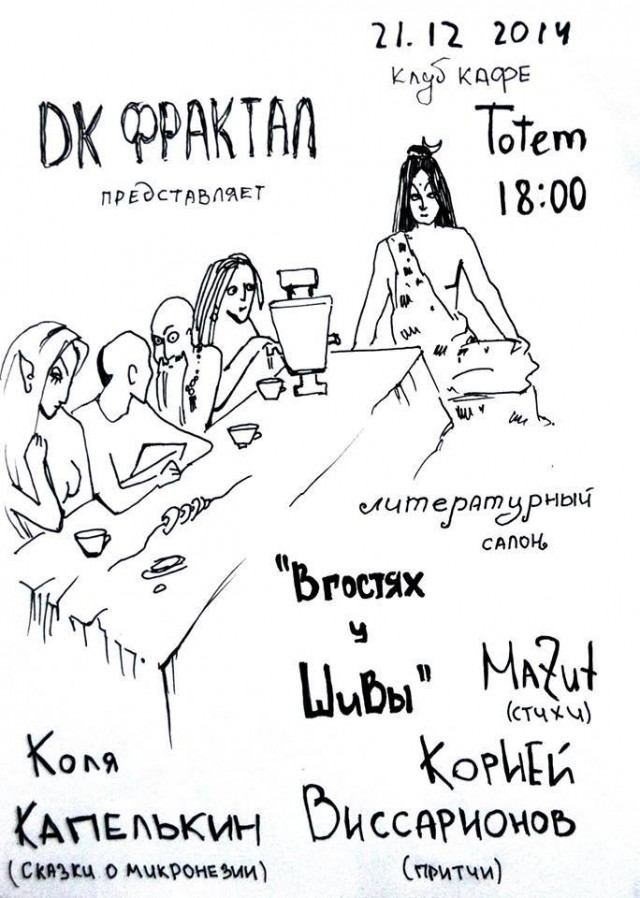 21.12 2014
клуб КАФЕ
Totem
18:00
DК ФРАКТАЛ
ПРЕДСТАВЛЯЕТ
литературный
САЛОН
"В гостях
у
ШИВЫ"
MaZut
(СТИХИ)
КОРНЕЙ
ВИССАРИОНОВ
(ПРИТЧИ)
Коля
КАПЕЛЬКИН
(СКАЗКИ О МИКРОНЕЗИИ)